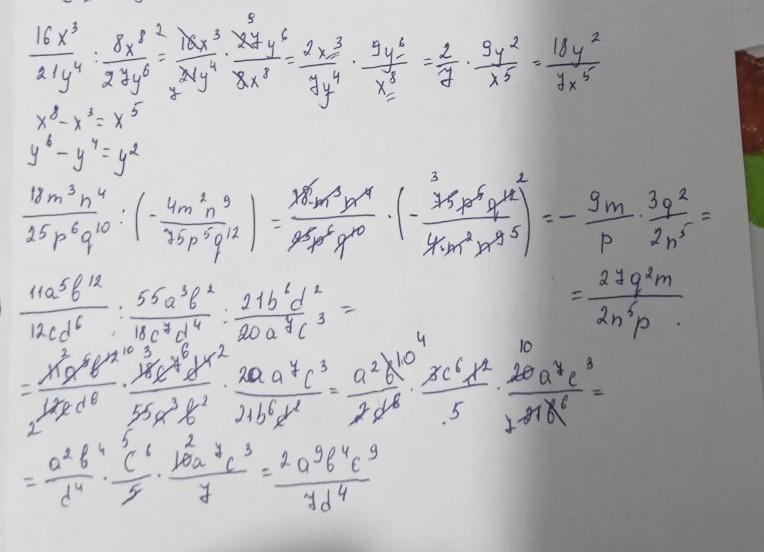 16x³/21y⁴ : 8x⁸/27y⁶ = 16x³/21y⁴ · 27y⁶/8x⁸ = 2x³/7y⁴ · 9y⁶/x⁸ = 2/7 · 9y²/x⁵ = 18y²/7x⁵
x⁸ - x³ = x⁵
y⁶ - y⁴ = y²
18m³n⁴/25p⁶q¹⁰ : (- 4m²n⁹/75p⁵q¹²) = 18m³n⁴/25p⁶q¹⁰ · (- 75p⁵q¹²/4m²n⁹) = - 9m/p · 3q²/2n⁵ =
= 27q²m/2n⁵p .
11a⁵b¹²/12cd⁶ : 55a³b²/18c⁷d⁴ : 21b⁶d²/20a⁷c³ =
= 11a⁵b¹²/12cd⁶ · 18c⁷d⁴/55a³b² · 20a⁷c³/21b⁶d² = a²b¹⁰/2d⁶ · 3c⁶d²/5 · 20a⁷c³/21b⁶ =
= a²b⁴/d⁴ · c⁶/5 · 10a⁷c³/7 = 2a⁹b⁴c⁹/7d⁴